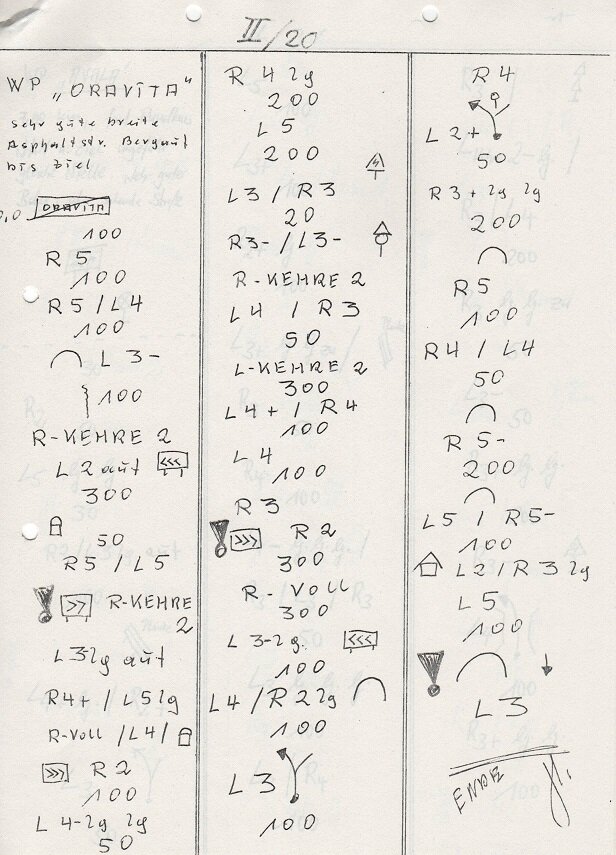 II/20
WP „ORAVITA"
sehr gute breite
Asphaltstr. Bergauf
bis Ziel
0,0 ORAVITA
100
R 5
100
R5 / L4
100
L 3-
100
R-KEHRE 2
L 2 auf <<<
300
50
R5 / L5
! >> R-KEHRE
2
L3lg auf
R4+ / L5lg
R-Voll / L4 /
>>> R 2
100
L 4-lg lg
50
R 4 lg
200
L 5
200
L3 / R3
20
R3- / L3-
R-KEHRE 2
L4 / R3
50
L-KEHRE 2
300
L4+ / R4
100
L 4
100
R 3
! >>> R 2
300
R-Voll
300
L 3-lg. <<<
100
L4 / R2 lg
100
L 3
100
R 4
L 2+
50
R3+ lg lg
200
R5
100
R4 / L4
50
R 5-
200
L5 / R5-
100
L2 / R3 lg
L 5
100
! ↓
L 3
ENDE